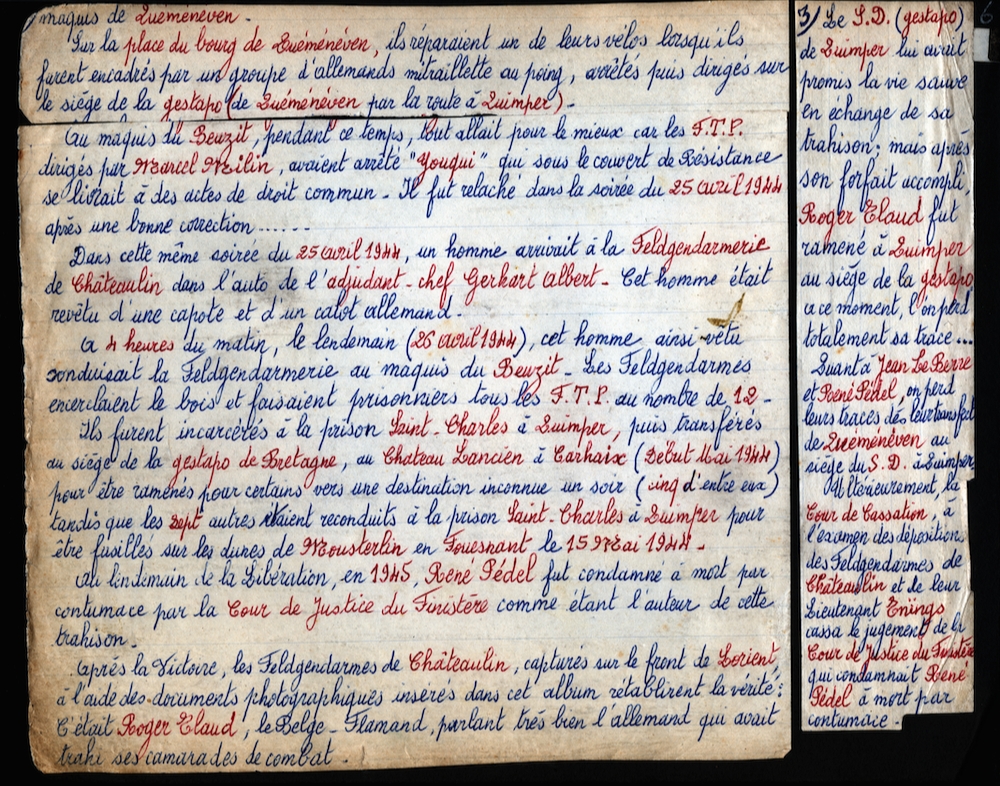 maquis de Quéménéven.
Sur la place du bourg de Quéménéven, ils réparaient un de leurs vélos lorsqu'ils
furent encadrés par un groupe d'allemands mitraillette au poing, arrêtés puis dirigés sur
le siège de la gestapo (de Quéménéven par la route à Quimper)-
Au maquis du Beuzit, pendant ce temps, tout allait pour le mieux car les F.T.P.
dirigés par Marcel Milin, avaient arrêté "Yougui" qui sous le couvert de Résistance
se livrait à des actes de droit commun - Il fut relaché dans la soirée du 25 avril 1944
après une bonne correction......
Dans cette même soirée du 25 avril 1944, un homme arrivait à la Feldgendarmerie
de Châteaulin dans l'auto de l'adjudant-chef Gerkart Albert - Cet homme était
revêtu d'une capote et d'un calot allemand.
A 4 heures du matin, le lendemain (26 avril 1944), cet homme ainsi vêtu
conduisait la Feldgendarmerie au maquis du Beuzit - Les Feldgendarmes
encerclaient le bois et faisaient prisonniers tous les F.T.P. au nombre de 12-
Ils furent incarcérés à la prison Saint-Charles à Quimper, puis transférés
au siège de la gestapo de Bretagne, au Chateau Lancien à Carhaix (Début Mai 1944)
pour être ramenés pour certains vers une destination inconnue un soir (cinq d'entre eux)
tandis que les sept autres étaient reconduits à la prison Saint-Charles à Quimper pour
être fusillés sur les dunes de Mousterlin en Fouesnant le 15 Mai 1944-
Au lendemain de la Libération, en 1945, René Pédel fut condamné à mort par
contumace par la Cour de Justice du Finistère comme étant l'auteur de cette
trahison-
Après la Victoire, les Feldgendarmes de Châteaulin, capturés sur le front de Lorient,
à l'aide des documents photographiques insérés dans cet album rétablirent la vérité:
C'était Roger Elaud, le Belge-Flamand, parlant très bien l'allemand qui avait
trahi ses camarades de combat-
6
3) Le S.D. (gestapo)
de Quimper lui avait
promis la vie sauve
en échange de sa
trahison; mais après
son forfait accompli,
Roger Elaud fut
ramené à Quimper
au siège de la gestapo
a ce moment, l'on perd
totalement sa trace...
Quant à Jean Le Berre
et René Pédel, on perd
leurs traces dès leur transfert
de Quéménéven au
siège du S.D. à Quimper
Ultérieurement, la
Cour de Cassation, à
l'examen des dépositions
des Feldgendarmes de
Châteaulin et de leur
Lieutenant Enings
cassa le jugement de la
Cour de Justice du Finistère
qui condamnait René
Pédel à mort par
contumace-